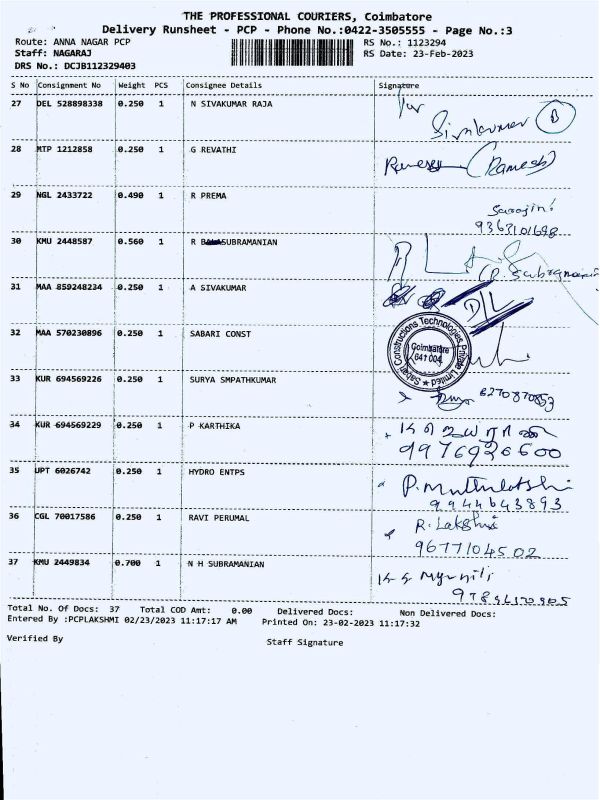 THE PROFESSIONAL COURIERS, Coimbatore
Delivery Runsheet - PCP - Phone No.:0422-3505555 - Page No.:3
Route: ANNA NAGAR PCP
RS No.: 1123294
Staff: NAGARAJ
RS Date: 23-Feb-2023
DRS No.: DCJB112329403
S No Consignment No Weight PCS Consignee Details Signature
27 DEL 528898338 0.250 1 N SIVAKUMAR RAJA
28 MTP 1212858 0.250 1 G REVATHI (Ramesh)
29 NGL 2433722 0.490 1 R PREMA
Sarojini
9363101698
30 KMU 2448587 0.560 1 R BALASUBRAMANIAN
31 MAA 859248234 0.250 1 A SIVAKUMAR
D/L
32 MAA 570230896 0.250 1 SABARI CONST
Sabari Constructions Technologies Private Limited
Coimbatore
641 004
33 KUR 694569226 0.250 1 SURYA SMPATHKUMAR
34 KUR 694569229 0.250 1 P KARTHIKA
9976926600
35 UPT 6026742 0.250 1 HYDRO ENTPS
P. Muthulakshmi
9944643893
36 CGL 70017586 0.250 1 RAVI PERUMAL
R. Lakshmi
9677104502
37 KMU 2449834 0.700 1 N H SUBRAMANIAN
Total No. Of Docs: 37 Total COD Amt: 0.00 Delivered Docs: Non Delivered Docs:
Entered By :PCPLAKSHMI 02/23/2023 11:17:17 AM Printed On: 23-02-2023 11:17:32
Verified By Staff Signature